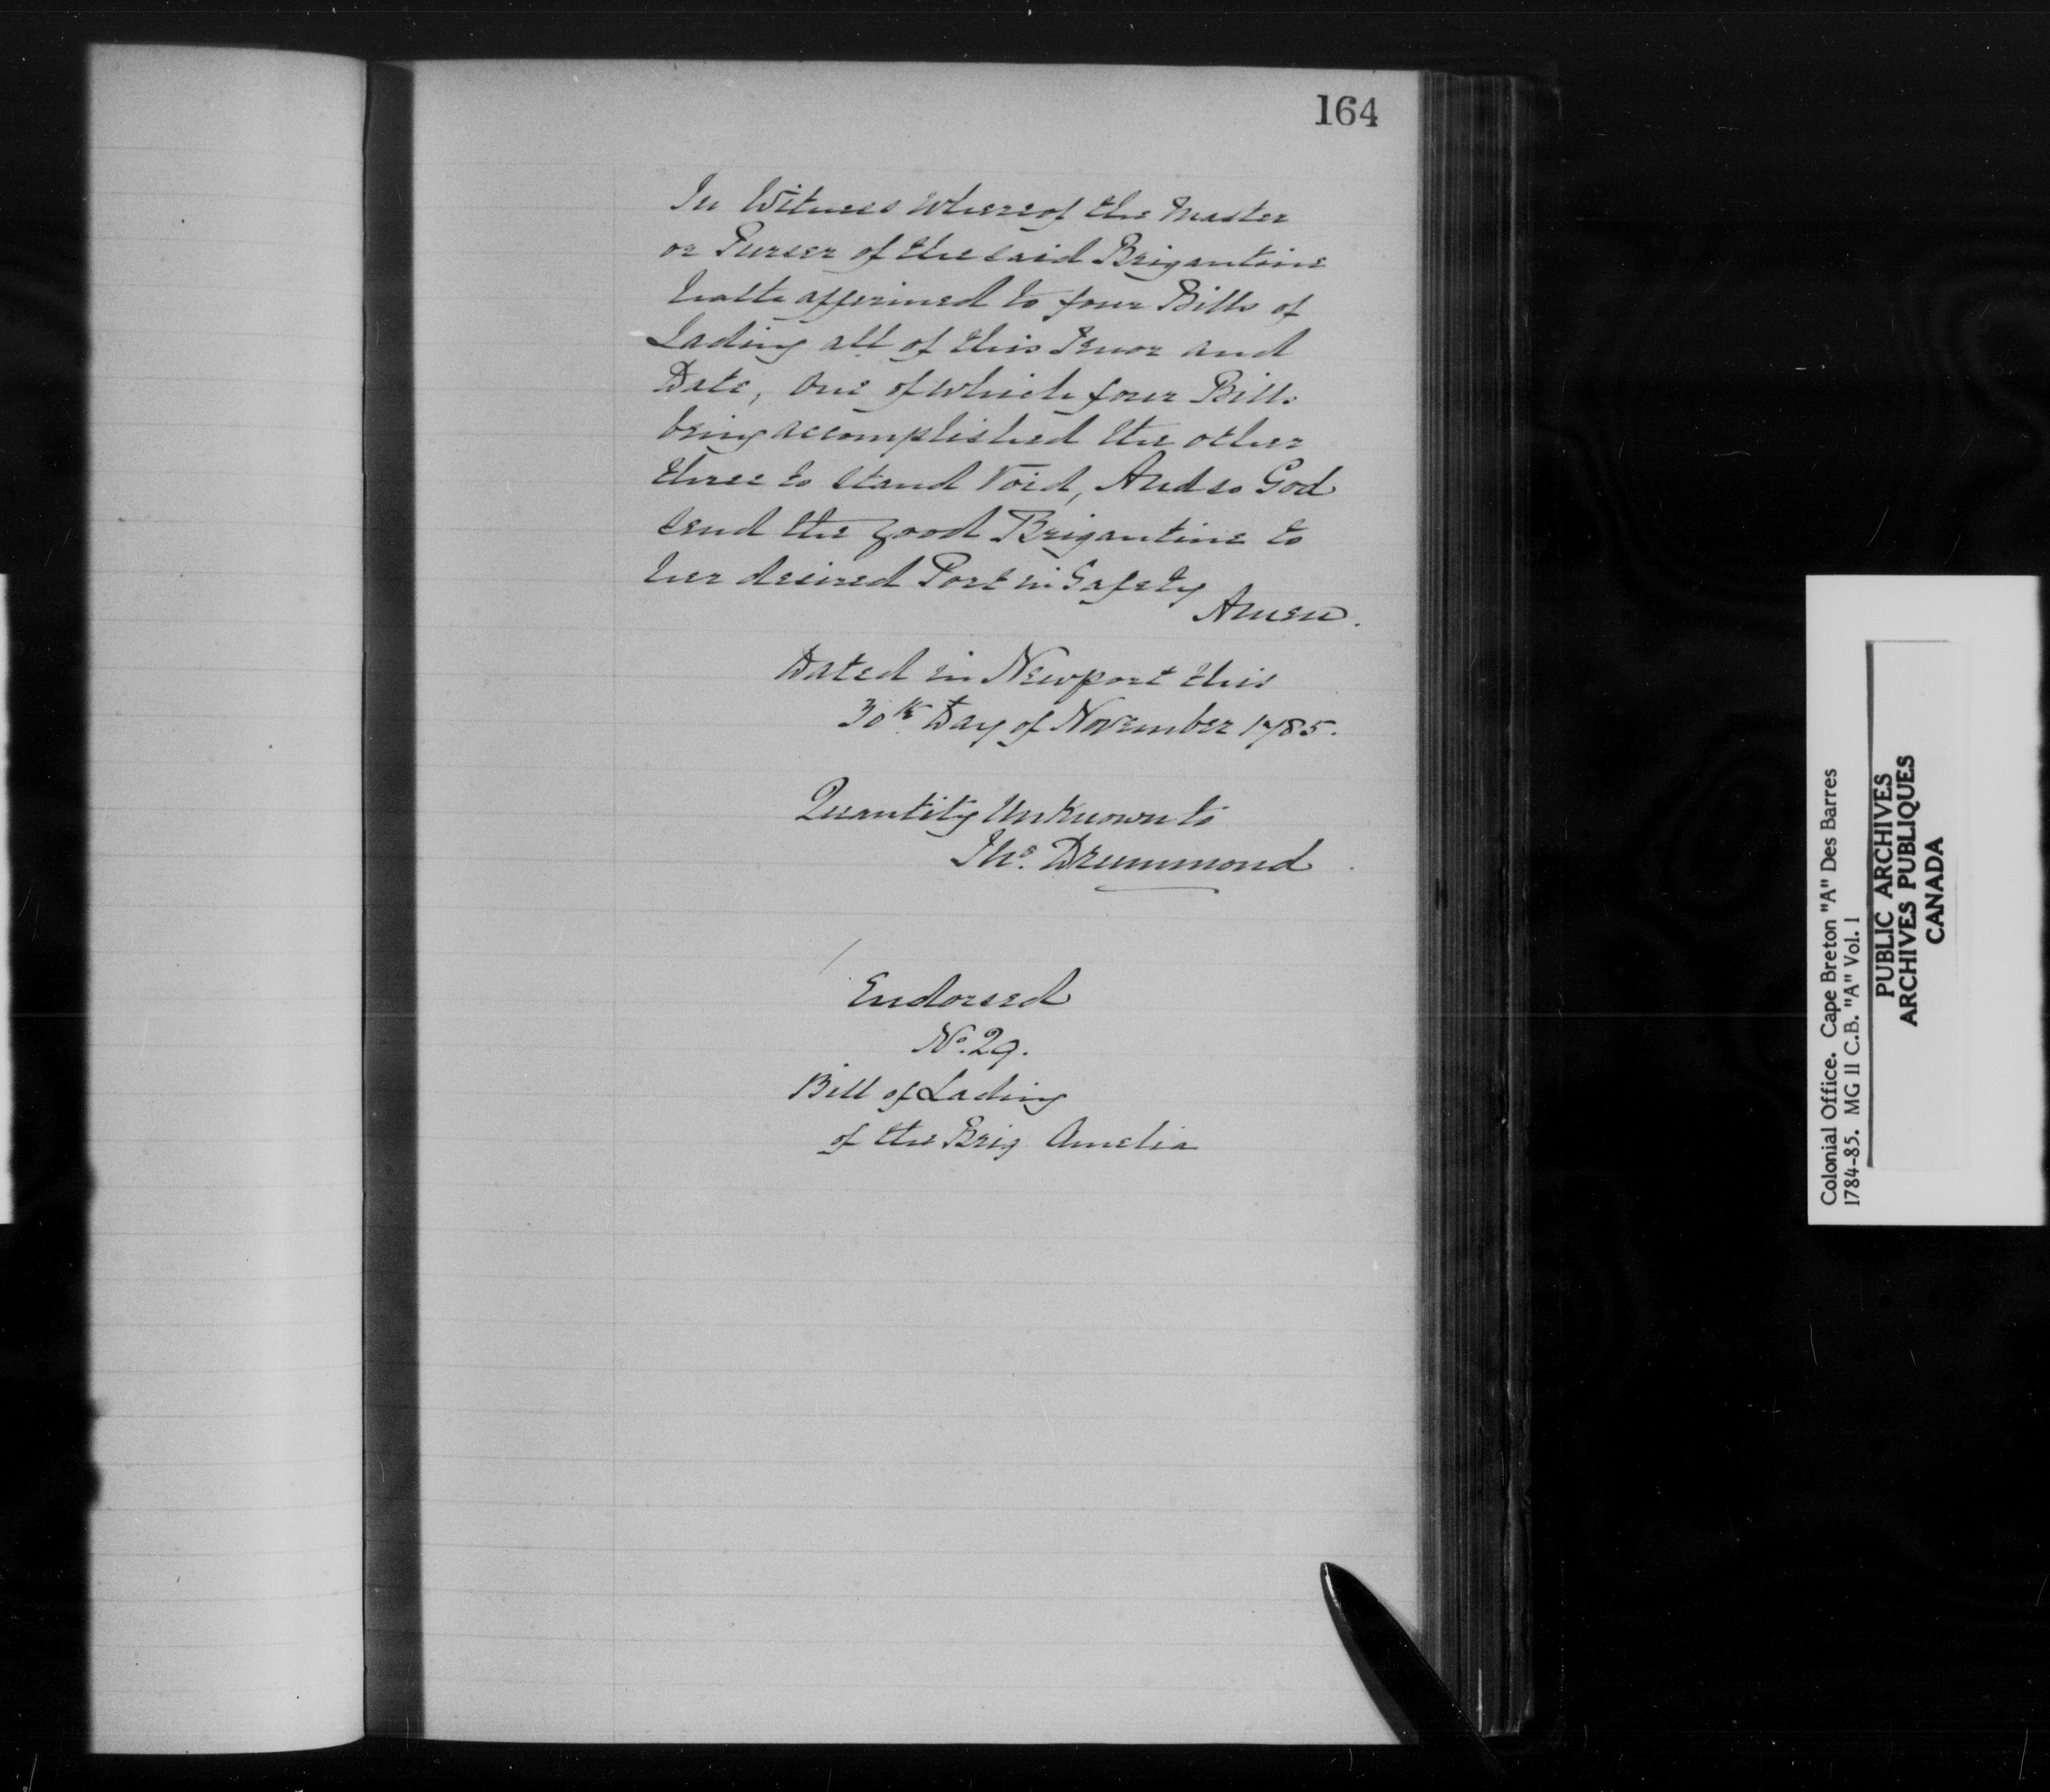 164
In Witness whereof the Master
or Purser of the said Brigantine
hath affirmed to four Bills of
Lading all of this Tenor and
Date, One of which four Bills
being accomplished the other
three to stand Void, And so God
send the good Brigantine to
her desired Port in Safety
Amen.
Dated in Newport this
30th Day of November 1785.
Quantity Unknown to
Thos. Drummond
Endorsed
No. 29.
Bill of Lading
of the Brig Amelia
Colonial Office. Cape Breton "A" Des Barres
1784-85. MG 11 C.B. "A" Vol. 1
PUBLIC ARCHIVES
ARCHIVES PUBLIQUES
CANADA